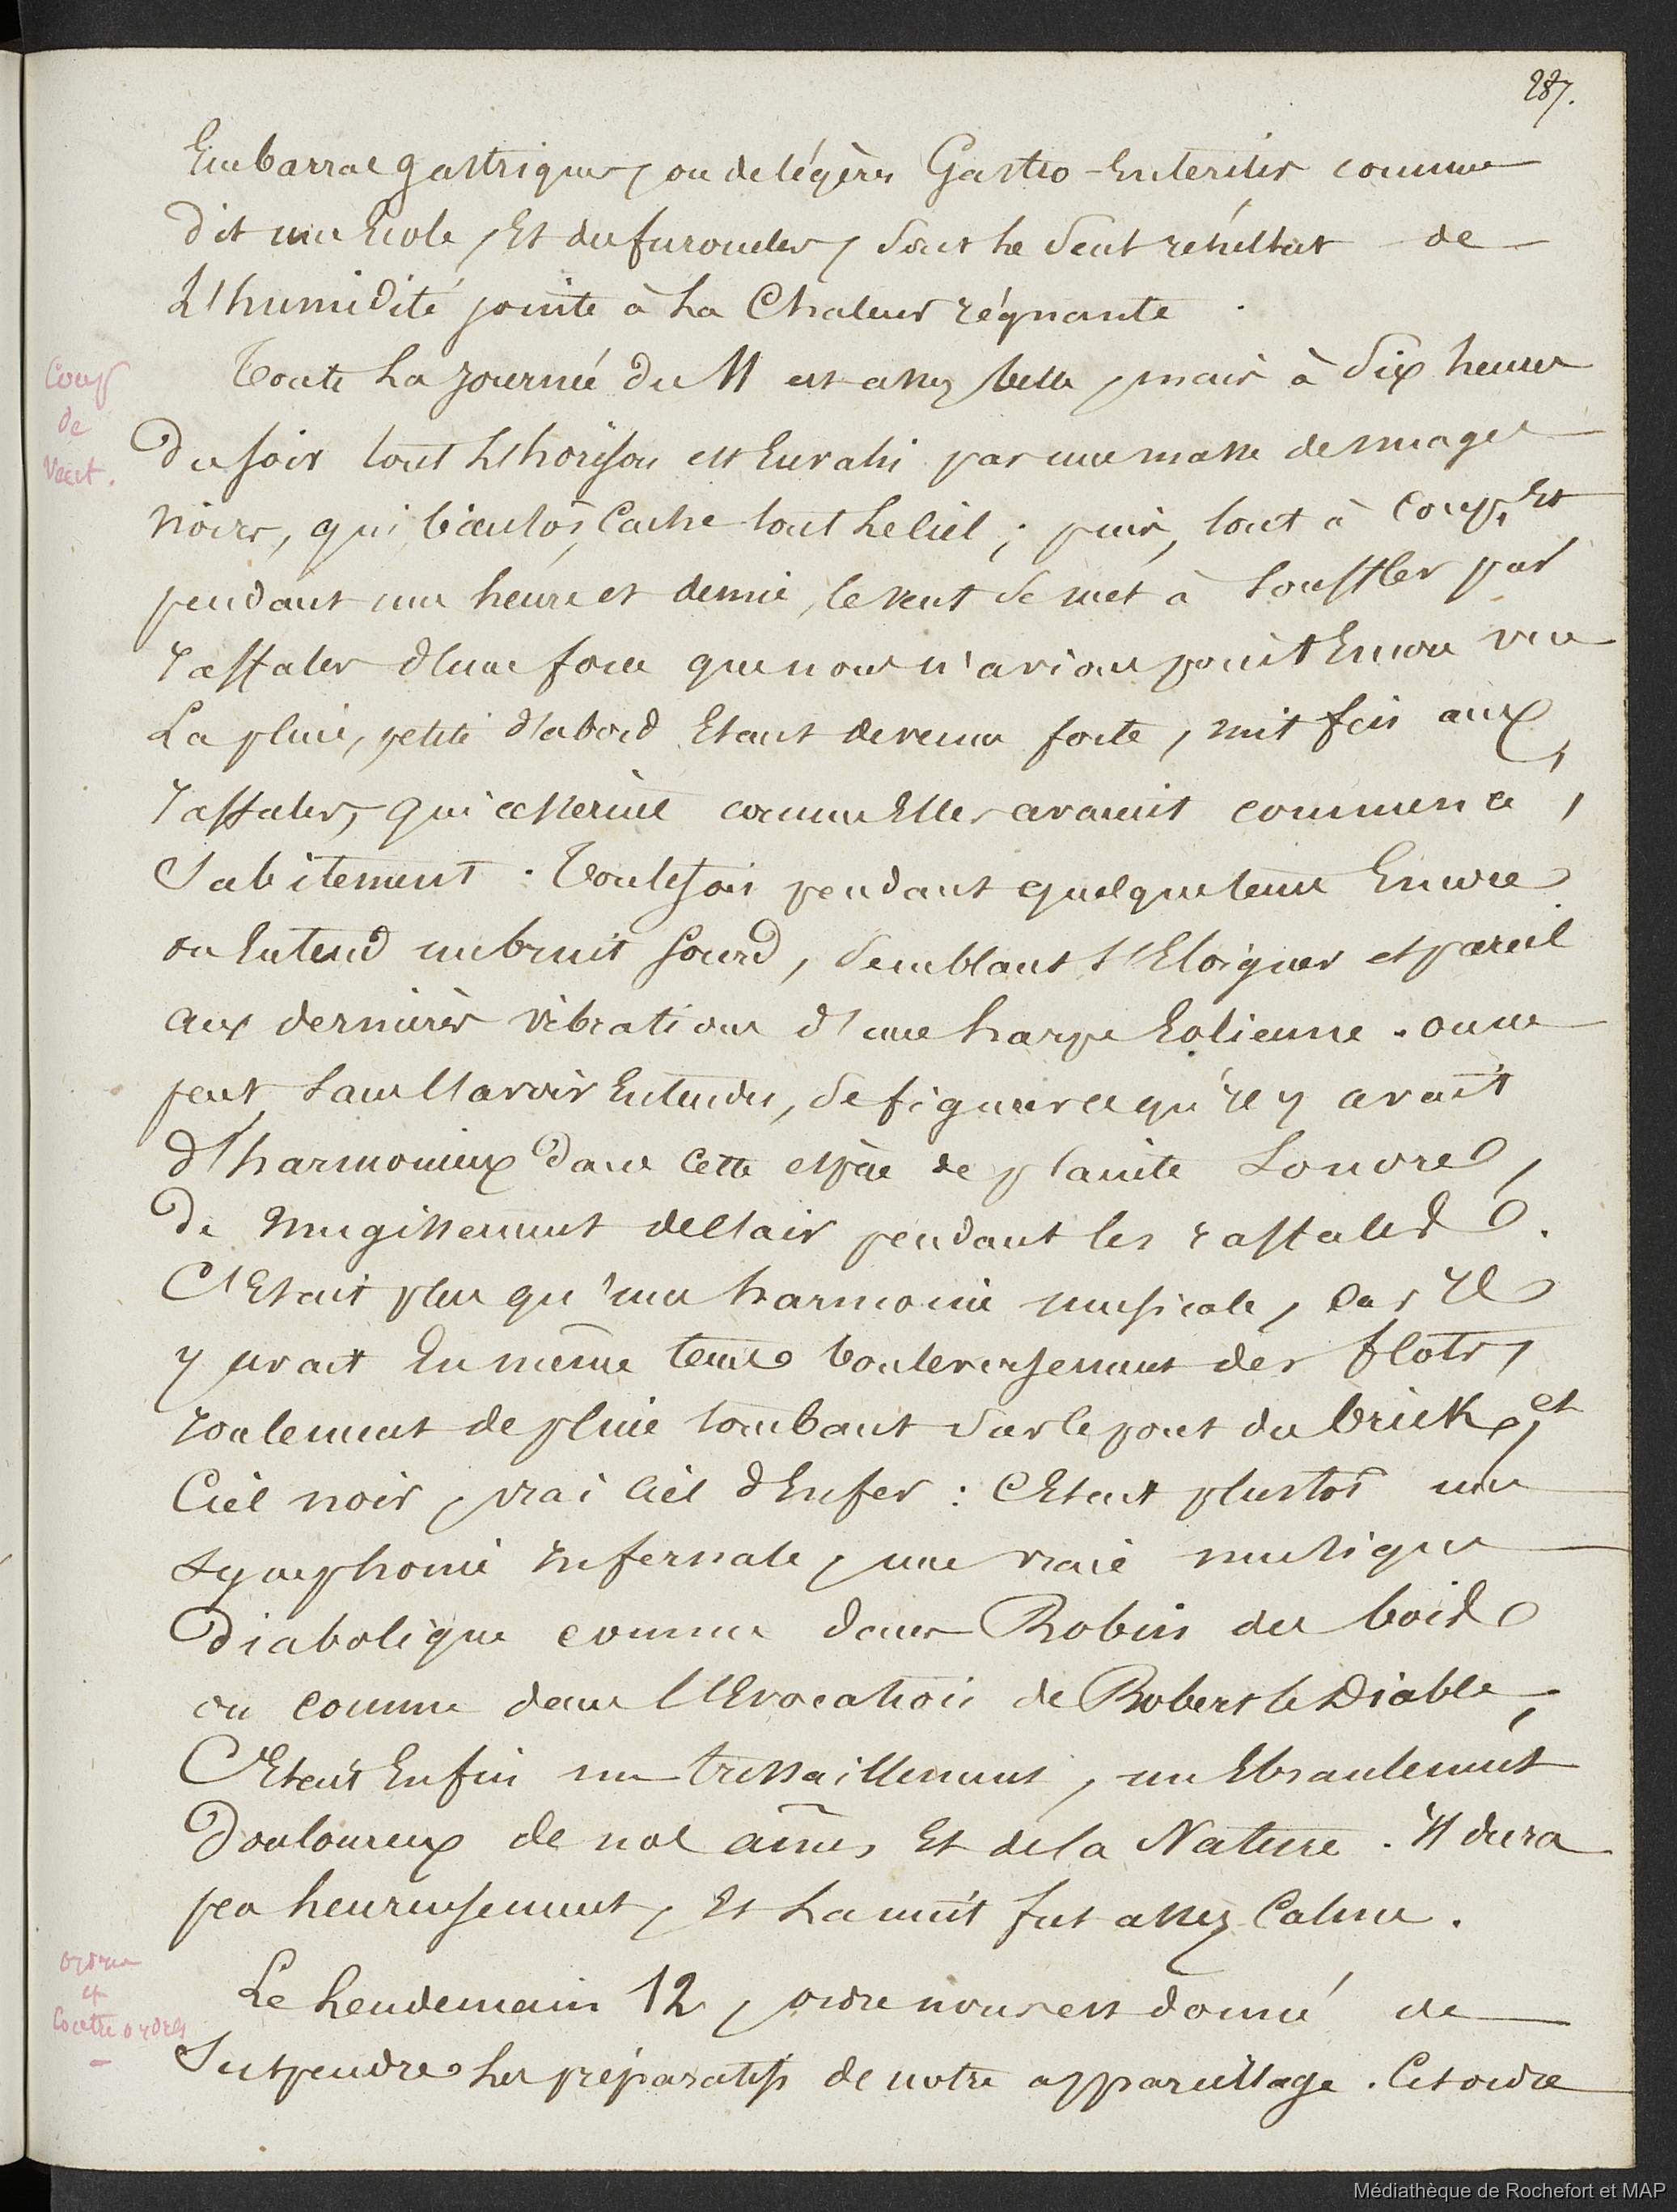 287.
Embarras gastriques, ou de légères Gastro-Enterites comme
dit une Ecole, Et des furoncles, sont le seul résultat de
L'humidité jointe à La Chaleur régnante.
Coup
de
Vent.
Toute La journée du 11 est assez belle, mais à Six heures
Du soir tout L'horison est Envahi par une masse de nuages
noirs, qui, bientôt, Cache tout Le Ciel ; puis, tout à coup, Et
pendant une heure et demie, le vent se met à Souffler par
raffales d'une force que nous n'avions point Encore vue
La pluie, petite d'abord Etant devenue forte, mit fin aux
raffales, qui cessèrent comme Elles avaient commencé,
Subitement. Toutefois pendant quelque tems Encore
on Entend un bruit sourd, semblant s'Eloigner et pareil
aux dernières vibrations d'une harpe Eolienne. on ne
peut, sans l'avoir Entendu, se figurer ce qu'il y avait
d'harmonieux dans cette espèce de plainte Sonore,
De mugissement de l'air pendant les raffales.
C'Etait plus qu'une harmonie musicale, car Il
y avait En même tems bouleversement des flots,
roulement de pluie tombant sur le pont du brick, et
Ciel noir, vrai Ciel d'Enfer : C'Etait plustot une
Symphonie Infernale, une vraie musique
Diabolique comme dans Robin des bois
ou comme dans l'Evocation de Robert le Diable,
C'Etait Enfin un tressaillement, un Ebranlement
Douloureux de nos âmes Et de la Nature. Il dura
peu heureusement, Et La nuit fut assez Calme.
ordres
et
Contre ordres
Le Lendemain 12, ordre nous est donné de
Suspendre Les préparatifs de notre appareillage. Cet ordre
Médiathèque de Rochefort et MAP